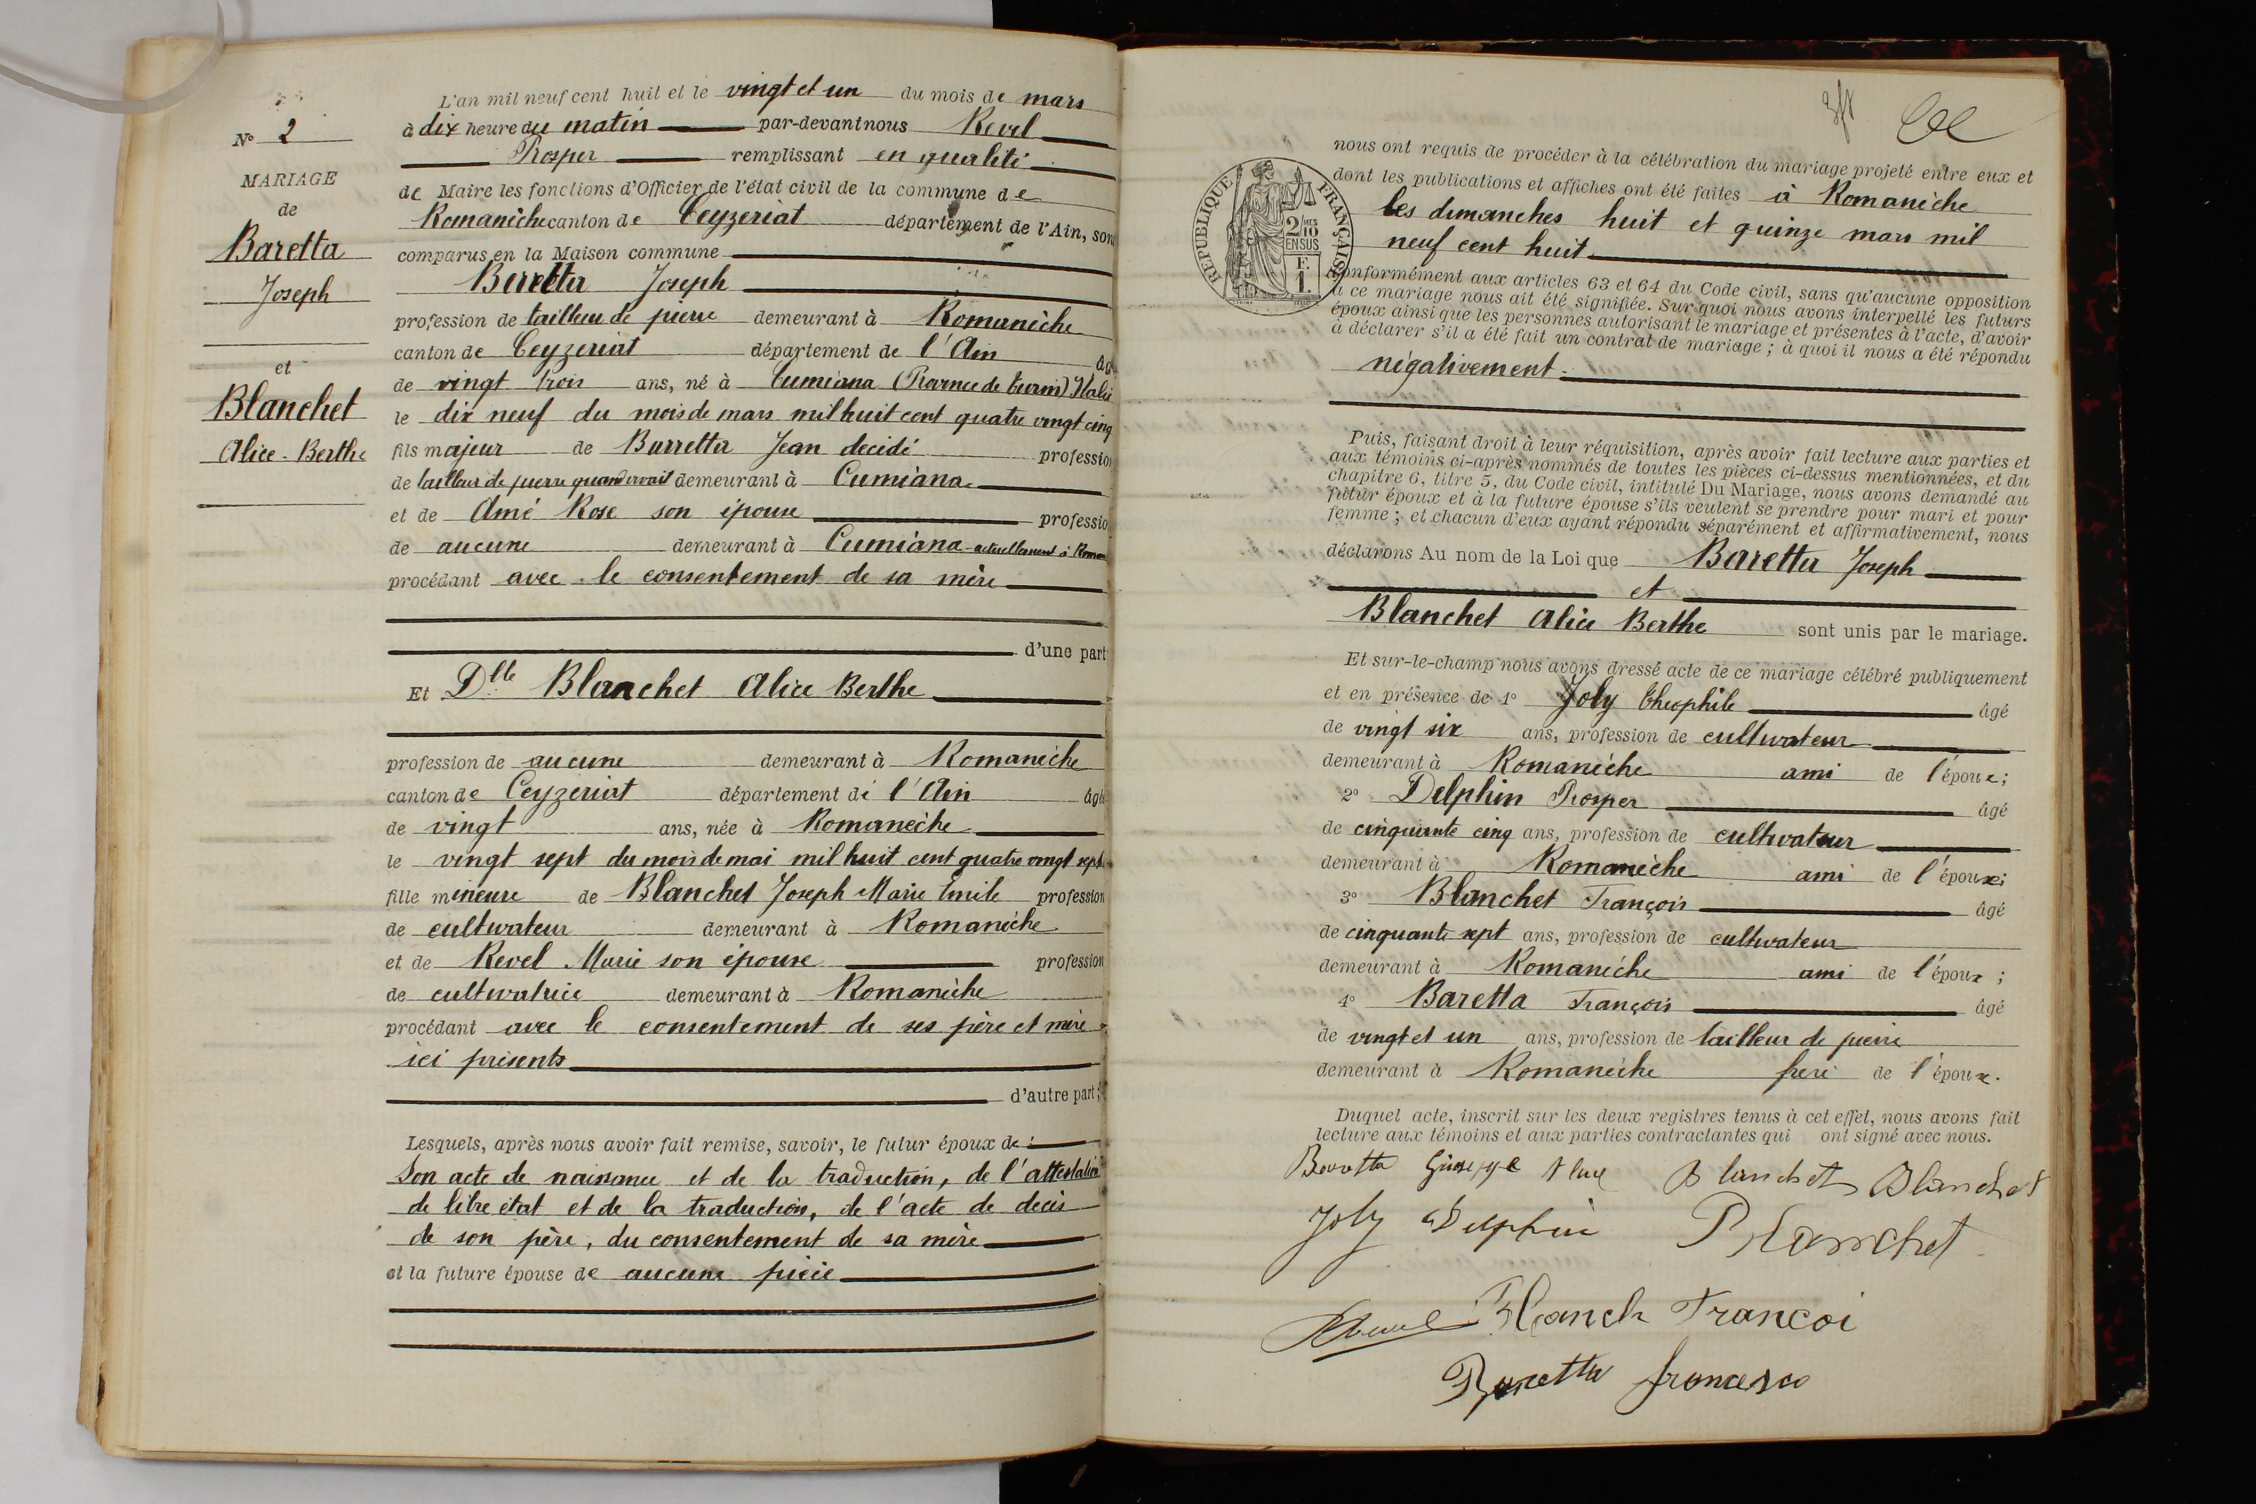 N° 2
MARIAGE
de
Baretta
Joseph
et
Blanchet
Alice-Berthe
L'an mil neuf cent huit et le vingt et un du mois de mars
à dix heure du matin par-devant nous Revel
Prosper remplissant en qualité
de Maire les fonctions d'Officier de l'état civil de la commune de
Romanèche canton de Ceyzeriat département de l'Ain, sont
comparus en la Maison commune
Baretta Joseph
profession de tailleur de pierre demeurant à Romanèche
canton de Ceyzeriat département de l'Ain âgé
de vingt trois ans, né à Cumiana (Province de Turin) Italie
le dix neuf du mois de mars mil huit cent quatre vingt cinq
fils majeur de Barretta Jean décidé profession
de tailleur de pierre quand vivait demeurant à Cumiana
et de Amé Rose son épouse profession
de aucune demeurant à Cumiana actuellement à
procédant avec le consentement de sa mère
d'une part
Et Dlle Blanchet Alice Berthe
profession de aucune demeurant à Romanèche
canton de Ceyzeriat département de l'Ain âgée
de vingt ans, née à Romanèche
le vingt sept du mois de mai mil huit cent quatre vingt sept
fille mineure de Blanchet Joseph Marie Emile profession
de cultivateur demeurant à Romanèche
et de Revel Marie son épouse profession
de cultivatrice demeurant à Romanèche
procédant avec le consentement de ses père et mère
ici présents
d'autre part;
Lesquels, après nous avoir fait remise, savoir, le futur époux de :
Son acte de naissance et de la traduction, de l'attestation
de libre état et de la traduction, de l'acte de décès
de son père, du consentement de sa mère
et la future épouse de aucune pièce
RÉPUBLIQUE FRANÇAISE
2/10 EN SUS
F. 1.
nous ont requis de procéder à la célébration du mariage projeté entre eux et
dont les publications et affiches ont été faites à Romanèche
les dimanches huit et quinze mars mil
neuf cent huit
conformément aux articles 63 et 64 du Code civil, sans qu'aucune opposition
à ce mariage nous ait été signifiée. Sur quoi nous avons interpellé les futurs
époux ainsi que les personnes autorisant le mariage et présentes à l'acte, d'avoir
à déclarer s'il a été fait un contrat de mariage ; à quoi il nous a été répondu
négativement.
Puis, faisant droit à leur réquisition, après avoir fait lecture aux parties et
aux témoins ci-après nommés de toutes les pièces ci-dessus mentionnées, et du
chapitre 6, titre 5, du Code civil, intitulé Du Mariage, nous avons demandé au
futur époux et à la future épouse s'ils veulent se prendre pour mari et pour
femme ; et chacun d'eux ayant répondu séparément et affirmativement, nous
déclarons Au nom de la Loi que Baretta Joseph
et
Blanchet Alice Berthe sont unis par le mariage.
Et sur-le-champ nous avons dressé acte de ce mariage célébré publiquement
et en présence de 1° Joly Théophile âgé
de vingt six ans, profession de cultivateur
demeurant à Romanèche ami de l'époux;
2° Delphin Prosper âgé
de cinquante cinq ans, profession de cultivateur
demeurant à Romanèche ami de l'époux;
3° Blanchet François âgé
de cinquante sept ans, profession de cultivateur
demeurant à Romanèche ami de l'époux ;
4° Baretta François âgé
de vingt et un ans, profession de tailleur de pierre
demeurant à Romanèche frère de l'époux.
Duquel acte, inscrit sur les deux registres tenus à cet effet, nous avons fait
lecture aux témoins et aux parties contractantes qui ont signé avec nous.
Baretta Giuseppe Blanchet Blanchet
Joly Delphin Blanchet
Revel Blanch Francoi
Baretta francesco